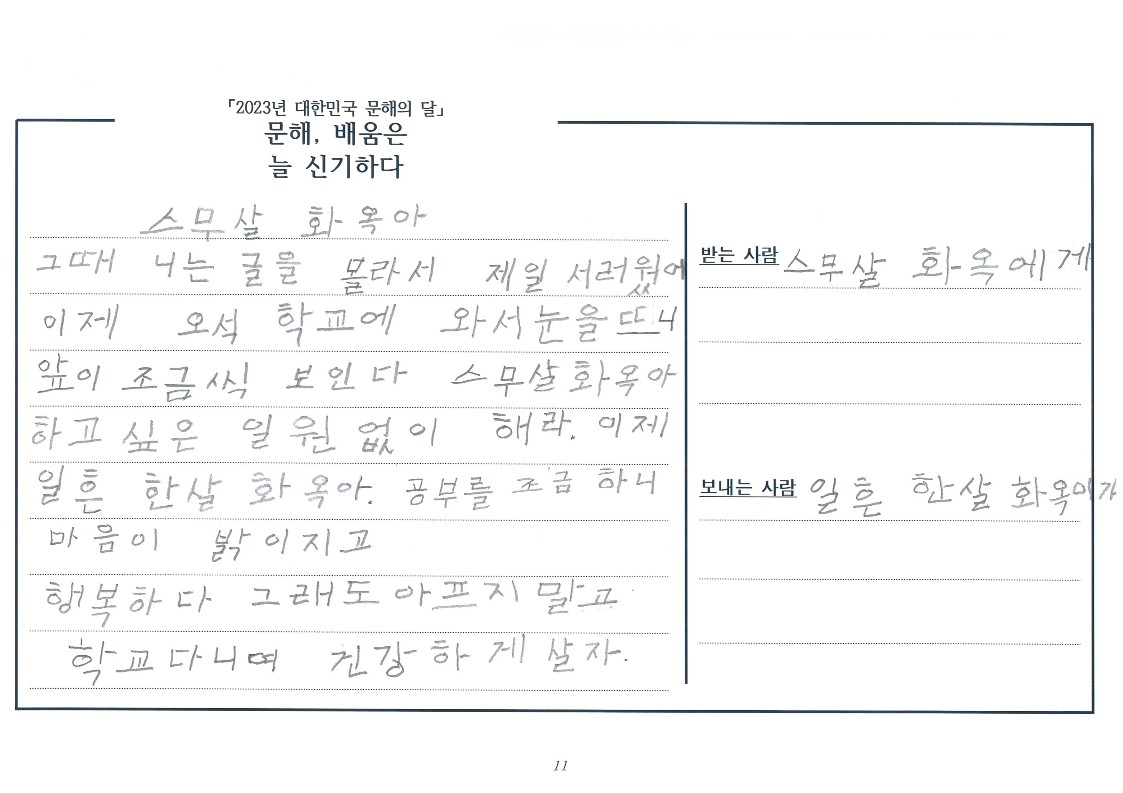 「2023년 대한민국 문해의 달」
문해, 배움은
늘 신기하다
스무살 화옥아
그때 나는 글을 몰라서 제일 서러웠어
이제 오석 학교에 와서 눈을 뜨니
앞이 조금씩 보인다 스무살 화옥아
하고 싶은 일 원 없이 해라. 이제
일흔 한살 화옥아. 공부를 조금 하니
마음이 밝이지고
행복하다 그래도 아프지 말고
학교다니며 건강하게 살자.
받는 사람 스무살 화옥에게
보내는 사람 일흔 한살 화옥이가
11